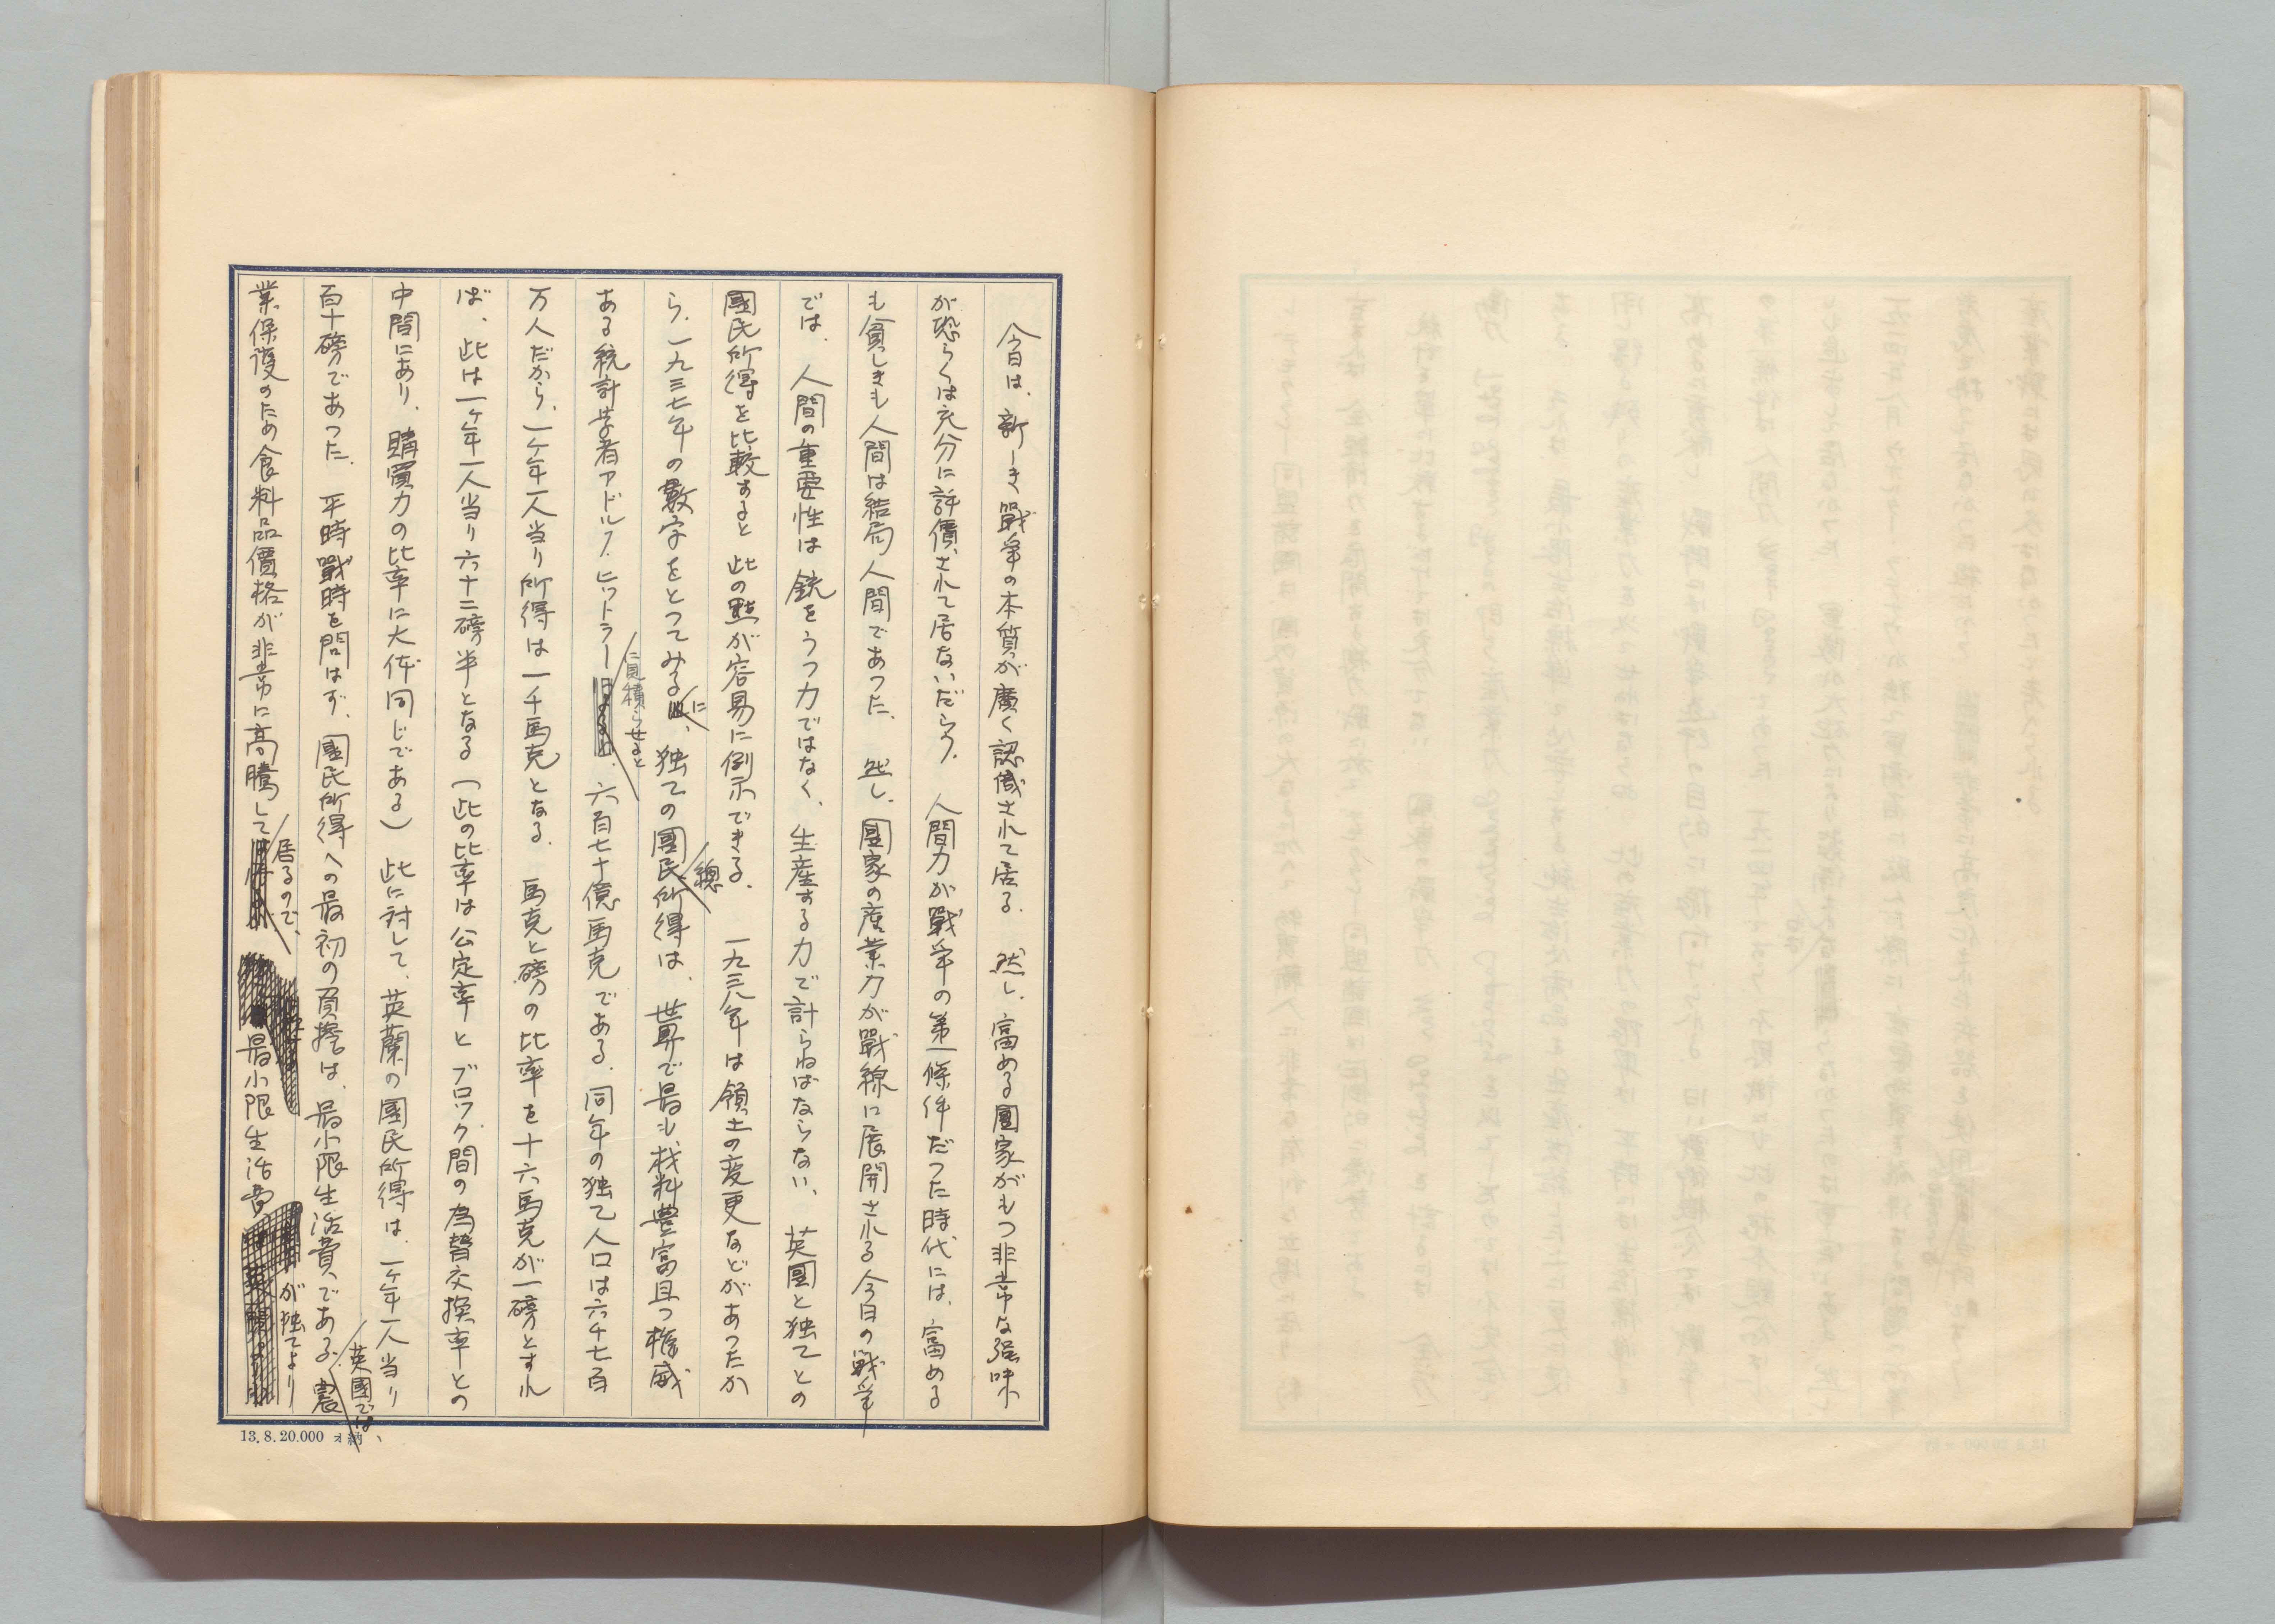 今日は、新しき戰爭の本質が廣く認識されて居る。然し、富める國家がもつ非常な强味
が恐らくは充分に評價されて居ないだらう。人間力が戰爭の第一條件だつた時代には、富める
も貧しきも人間は結局人間であつた。然し、國家の産業力が戰線に展開される今日の戰爭
では、人間の重要性は銃をうつ力ではなく、生産する力で計らねばならない、英國と独乙との
國民所得を比較すると此の點が容易に例示できる。一九三八年は領土の変更などがあつたか
ら、一九三七年の數字をとつてみるに、独乙の國民總所得は、世界で最も材料豊富且つ権威
ある統計学者アドルフ・ヒットラーに見積らせると、六百七十億馬克である。同年の独乙人口は六千七百
万人だから、一ヶ年一人当り所得は一千馬克となる。馬克と磅の比率を十六馬克が一磅とすれ
ば、此は一ヶ年一人当り六十二磅半となる(此の比率は公定率とブロック間の為替交換率との
中間にあり、購買力の比率に大体同じである)此に対して、英蘭の國民所得は、一ヶ年一人当り
百十磅であつた。平時戰時を問はず、國民所得への最初の負擔は、最小限生活費である。英國では、農
業保護のため食料品價格が非常に高騰して居るので、最小限生活費が独乙より
13.8.20.000 オ納